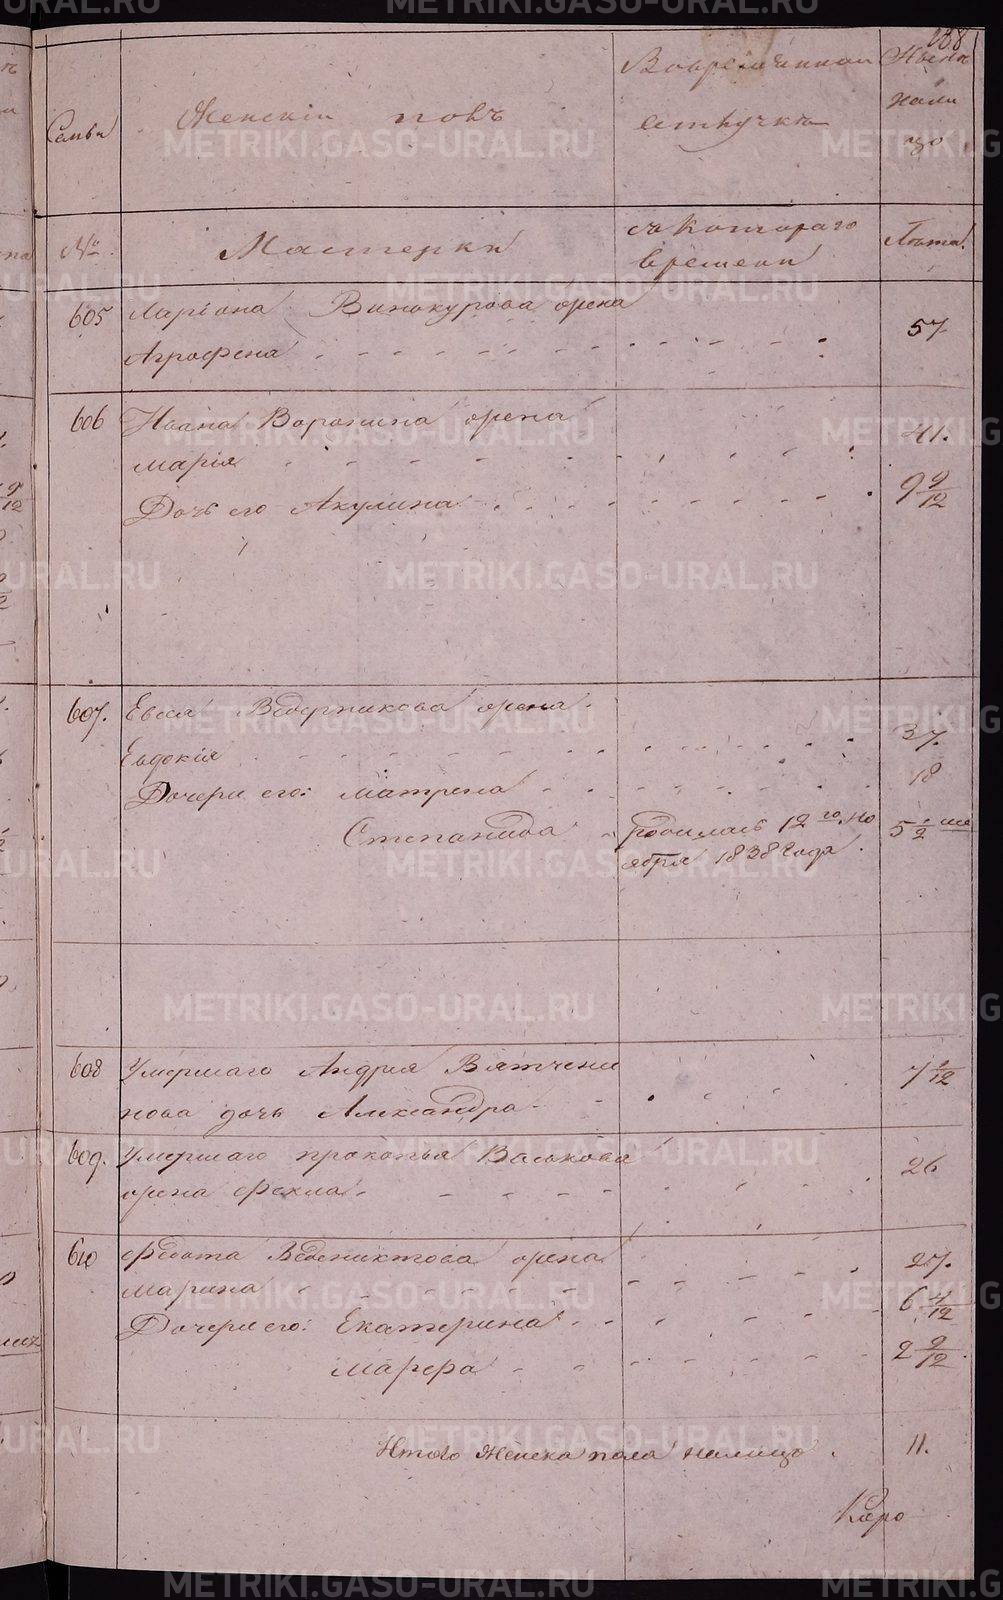 288
Семьи
Женскій полъ
Во временной
отлучкѣ
Нынѣ
нали
цо
№
Мастерки
съ котораго
времени
Лѣта.
605
Ларіона Винокурова жена
Агрофена
57
606
Ивана Воронина жена
Марія
41.
Дочь его Акулина
9 9/12
607.
Евсея Ведерникова жена
Евдокія
37.
Дочери его: Матрена
18
Степанида
родилась 12го но
ября 1838 года.
5 1/2 ме
608
Умершаго Андрея Вятчени
нова дочь Александра
609.
Умершаго Прокопья Васькова
жена Фекла
26
610
Федота Веденихтова жена
Марина
27.
Дочери его: Екатерина
6 4/12
Марфа
2 9/12
Итого женска пола налицо
11.
METRIKI.GASO-URAL.RU